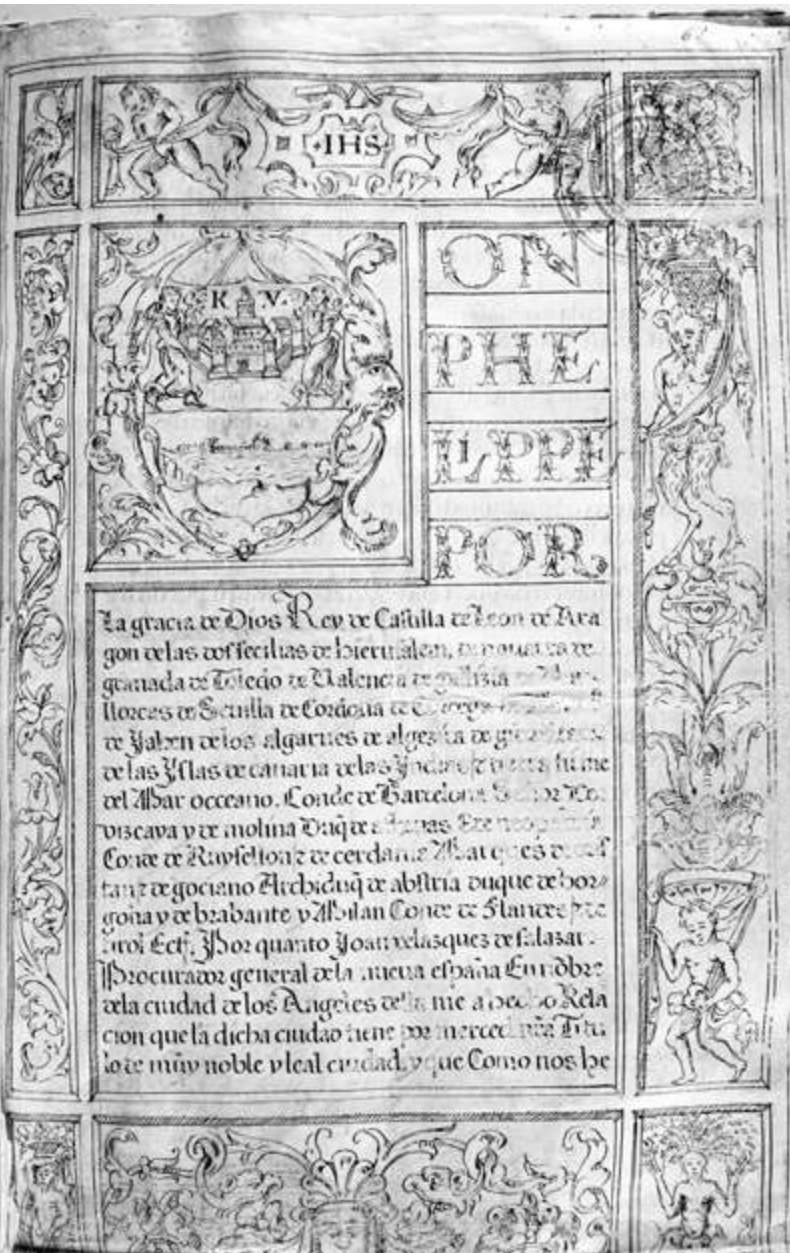 6
IHS
K V.
ON
PHE
LiPPE
POR.
La gracia de Dios Rey de Castilla de Leon de Ara
gon delas dos secilias de hierusalem, de nauarra de
granada de Toledo de Valencia de gallizia de
llorcas de Seuilla de Cordoua de
de Yahen delos algarues de algezira de
delas Yslas de canaria delas Yndias
del Mar occeano. Conde de Barcelona Señor De
vizcaya y de molina Duq̃ de
Conde de Ruysellon z de cerdania Marques de
tan z de gociano Archiduq̃ de abstria duque de bor
goña y de brabante y Milan Conde de Flandes
tirol Ectĩ. Por quanto Joan velazquez de salazar.
Procurador general dela nueua españa En nõbre
dela ciudad de los Angeles me a hecho Rela
cion que la dicha ciudad tiene por merced nr̃a Titu
lo de muy noble y leal ciudad. y que Como nos he